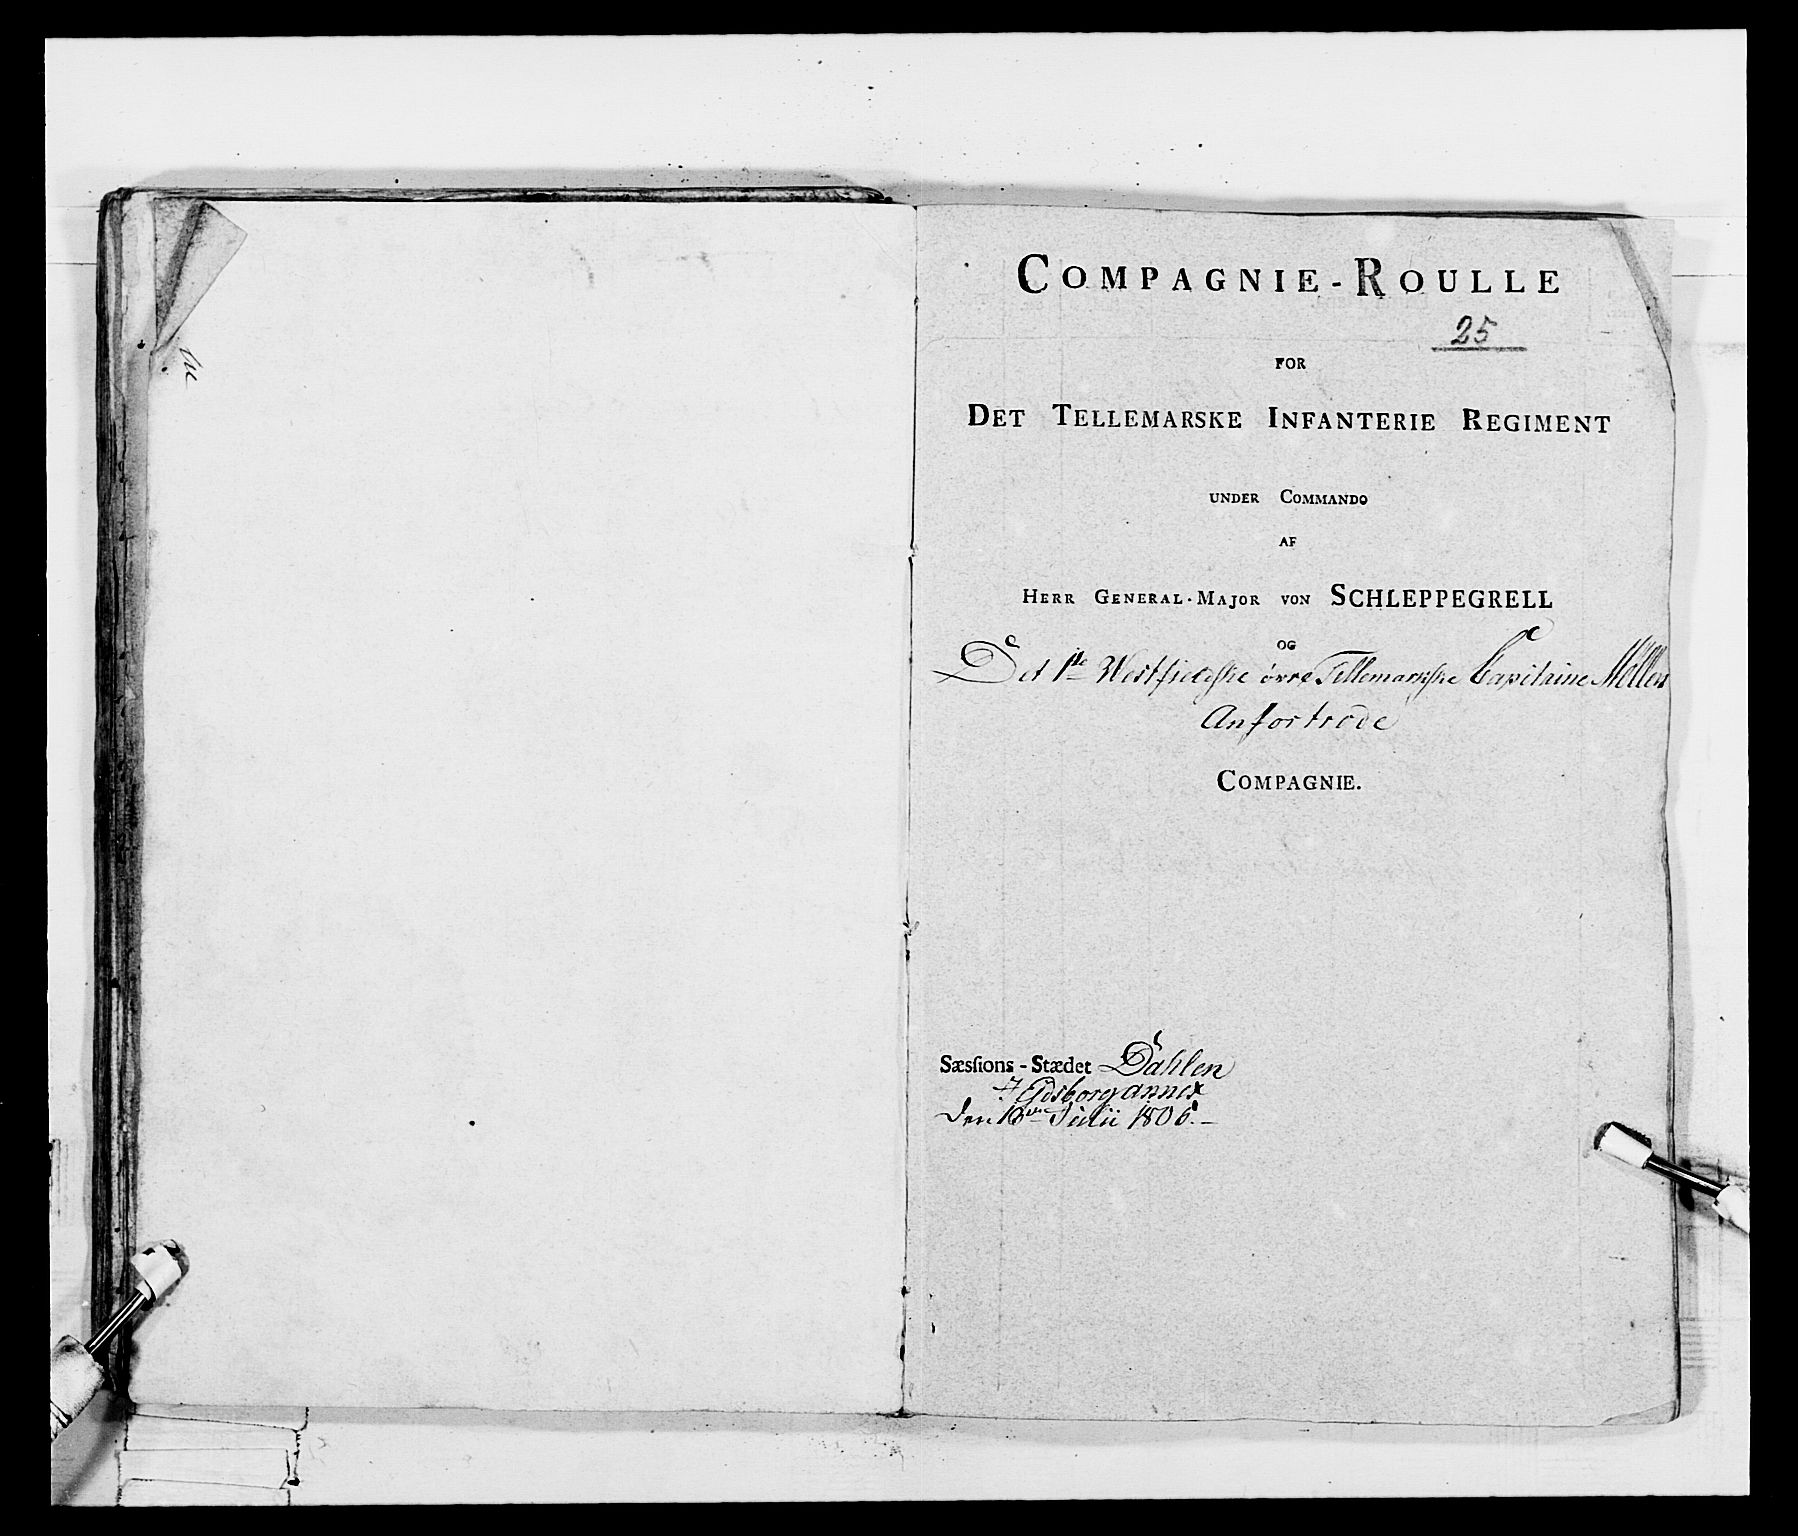 COMPAGNIE-ROULLE
25
FOR
DET TELLEMARSKE INFANTERIE REGIMENT
UNDER COMMANDO
AF
HERR GENERAL-MAJOR VON SCHLEPPEGRELL
OG
Det 1te Westfieldske övre Tellemarkske Capitaine Möllers
Anfortrode
COMPAGNIE.
Sæsſions-Stædet Dahlen
i Eidsborg annex
Den 16de Julii 1806.